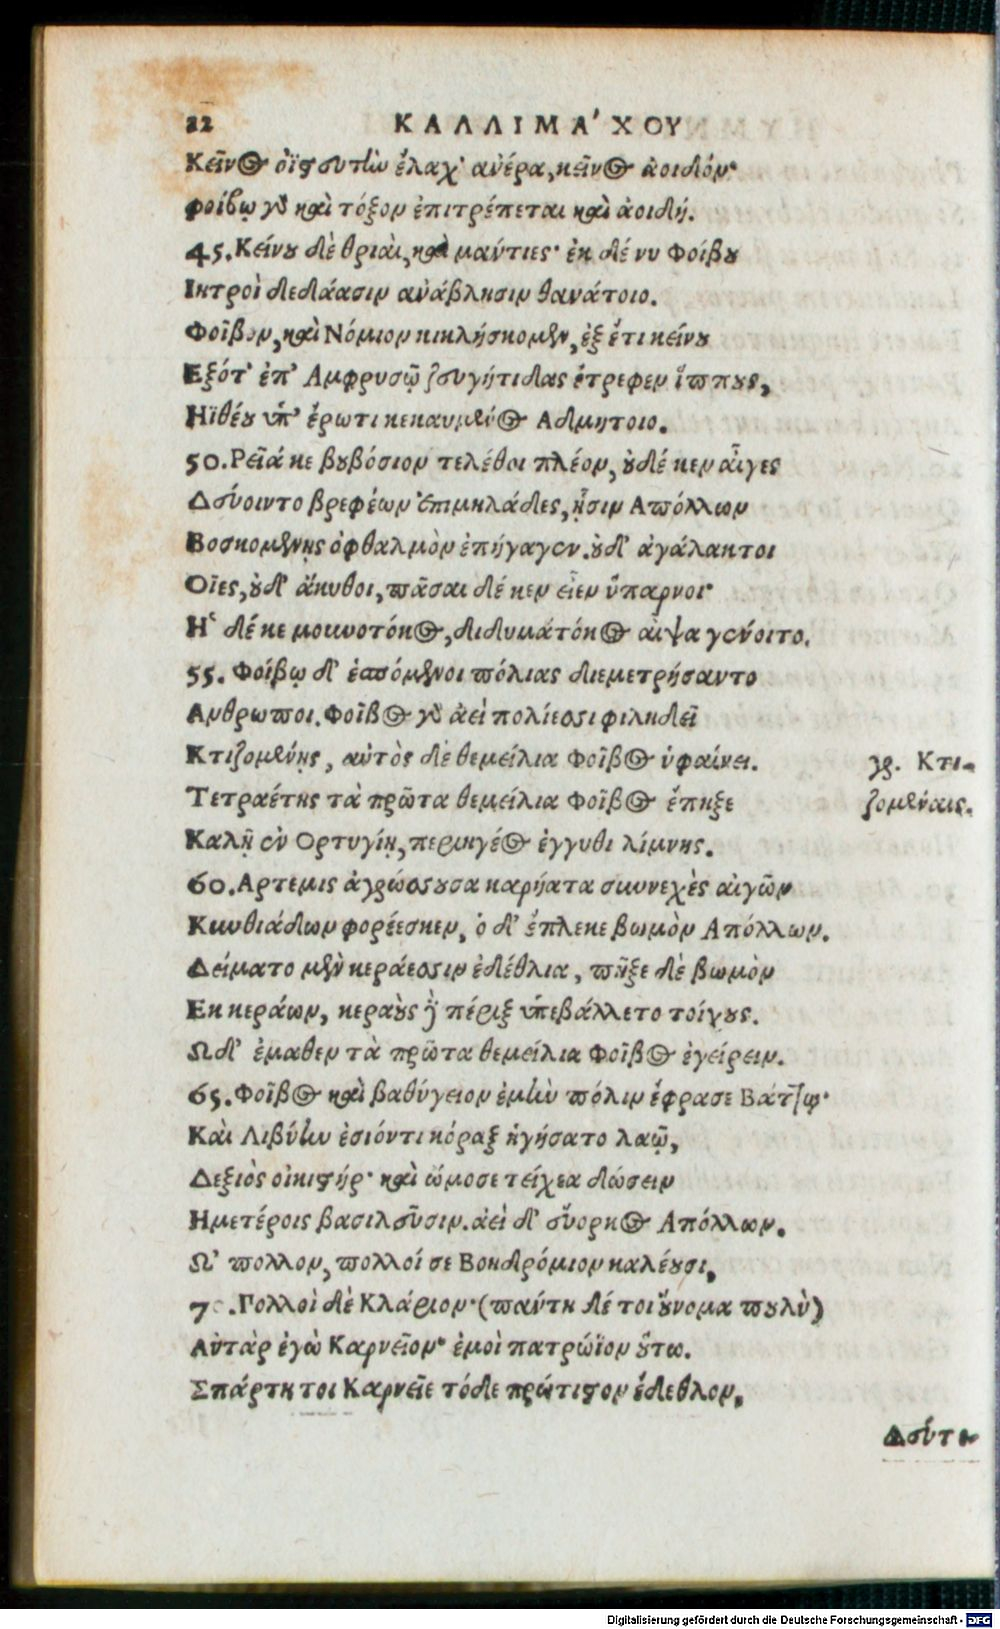 12 ΚΑΛΛΙΜΑ'ΧΟΥ
Κεῖνος ὀϊστευτὴν ἔλαχ' ἀνέρα, κεῖνος ἀοιδόν·
φοίβῳ γὰρ καὶ τόξον ἐπιτρέπεται καὶ ἀοιδή.
45. Κείνου δὲ θριαὶ, καὶ μάντιες· ἐκ δέ νυ Φοίβου
Ιητροὶ δεδάασιν ἀνάβλησιν θανάτοιο.
Φοῖβον, καὶ Νόμιον κικλήσκομεν, ἐξ ἔτι κείνου
Εξότ' ἐπ' Αμφρυσῷ ζευγήτιδας ἔτρεφεν ἵππους,
Ηϊθέου ὑπ' ἔρωτι κεκαυμένος Αδμητοιο.
50. Ρεῖά κε βουβόσιον τελέθοι πλέον, οὐδέ κεν αἶγες
Δεύοιντο βρεφέων ἐπιμηλάδες, ᾗσιν Απόλλων
Βοσκομένης ὀφθαλμὸν ἐπήγαγεν. οὐδ' ἀγάλακτοι
Οἶες, οὐδ' ἄκυθοι, πᾶσαι δέ κεν εἶεν ὕπαρνοι·
Η῾ δέ κε μουνοτόκος, διδυματόκος αἶψα γένοιτο.
55. Φοίβῳ δ' ἑσπόμενοι πόλιας διεμετρήσαντο
Ανθρωποι. Φοῖβος γὰρ ἀεὶ πολίεσσι φιληδεῖ
Κτιζομένης, αὐτὸς δὲ θεμείλια Φοῖβος ὑφαίνει.
γρ. Κτι-
ζομέναις.
Τετραέτης τὰ πρῶτα θεμείλια Φοῖβος ἔπηξε
Καλῇ ἐν Ορτυγίῃ, περιηγέος ἐγγυθι λίμνης.
60. Αρτεμις ἀγρώσσουσα καρήατα συνεχὲς αἰγῶν
Κυνθιάδων φορέεσκεν, ὁ δ' ἔπλεκε βωμὸν Απόλλων.
Δείματο μὲν κεράεσσιν ἐδέθλια, πῆξε δὲ βωμὸν
Εκ κεράων, κεραοὺς δὲ πέριξ ὑπεβάλλετο τοίχους.
Ωδ' ἔμαθεν τὰ πρῶτα θεμείλια Φοῖβος ἐγείρειν.
65. Φοῖβος καὶ βαθύγειον ἐμὴν πόλιν ἔφρασε Βάττῳ·
Καὶ Λιβύην ἐσιόντι κόραξ ἡγήσατο λαῷ,
Δεξιὸς οἰκιστήρ· καὶ ὤμοσε τείχεα δώσειν
Ημετέροις βασιλεῦσιν. ἀεὶ δ' εὔορκος Απόλλων.
Ω' πολλον, πολλοί σε Βοηδρόμιον καλέουσι,
70. Πολλοὶ δὲ Κλάριον· (πάντη δέ τοι οὔνομα πουλὺ)
Αὐτὰρ ἐγὼ Καρνεῖον· ἐμοὶ πατρώϊον οὕτω.
Σπάρτη τοι Καρνεῖε τόδε πρώτιστον ἔδεθλον,
Δεύτε
Digitalisierung gefördert durch die Deutsche Forschungsgemeinschaft - DFG